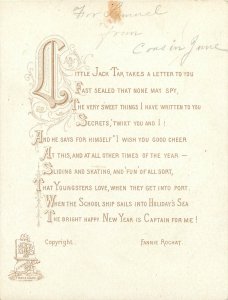 For Samuel
from
Cousin June
Little Jack Tar, takes a letter to you
Fast sealed that none may spy,
The very sweet things I have written to you
Secrets, 'twixt you and I!
And he says for himself "I wish you good cheer
At this, and at all other times of the year —
Sliding and skating, and fun of all sort,
That Youngsters love, when they get into port
When the School ship sails into Holiday's Sea
The bright happy New Year is Captain for me!
Copyright. Fannie Rochat.